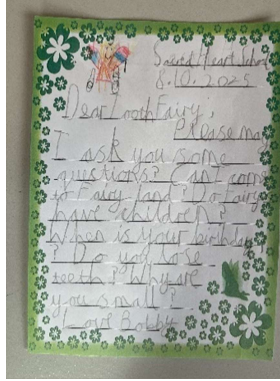 Sacred Heart School
8.10.2025
Dear Tooth Fairy,
Please may
I ask you some
questions? Can I come
to Fairy land? Do Fairy
have children?
When is your birthday
? Do you lose
teeth? Why are
you small?
Love Bobby